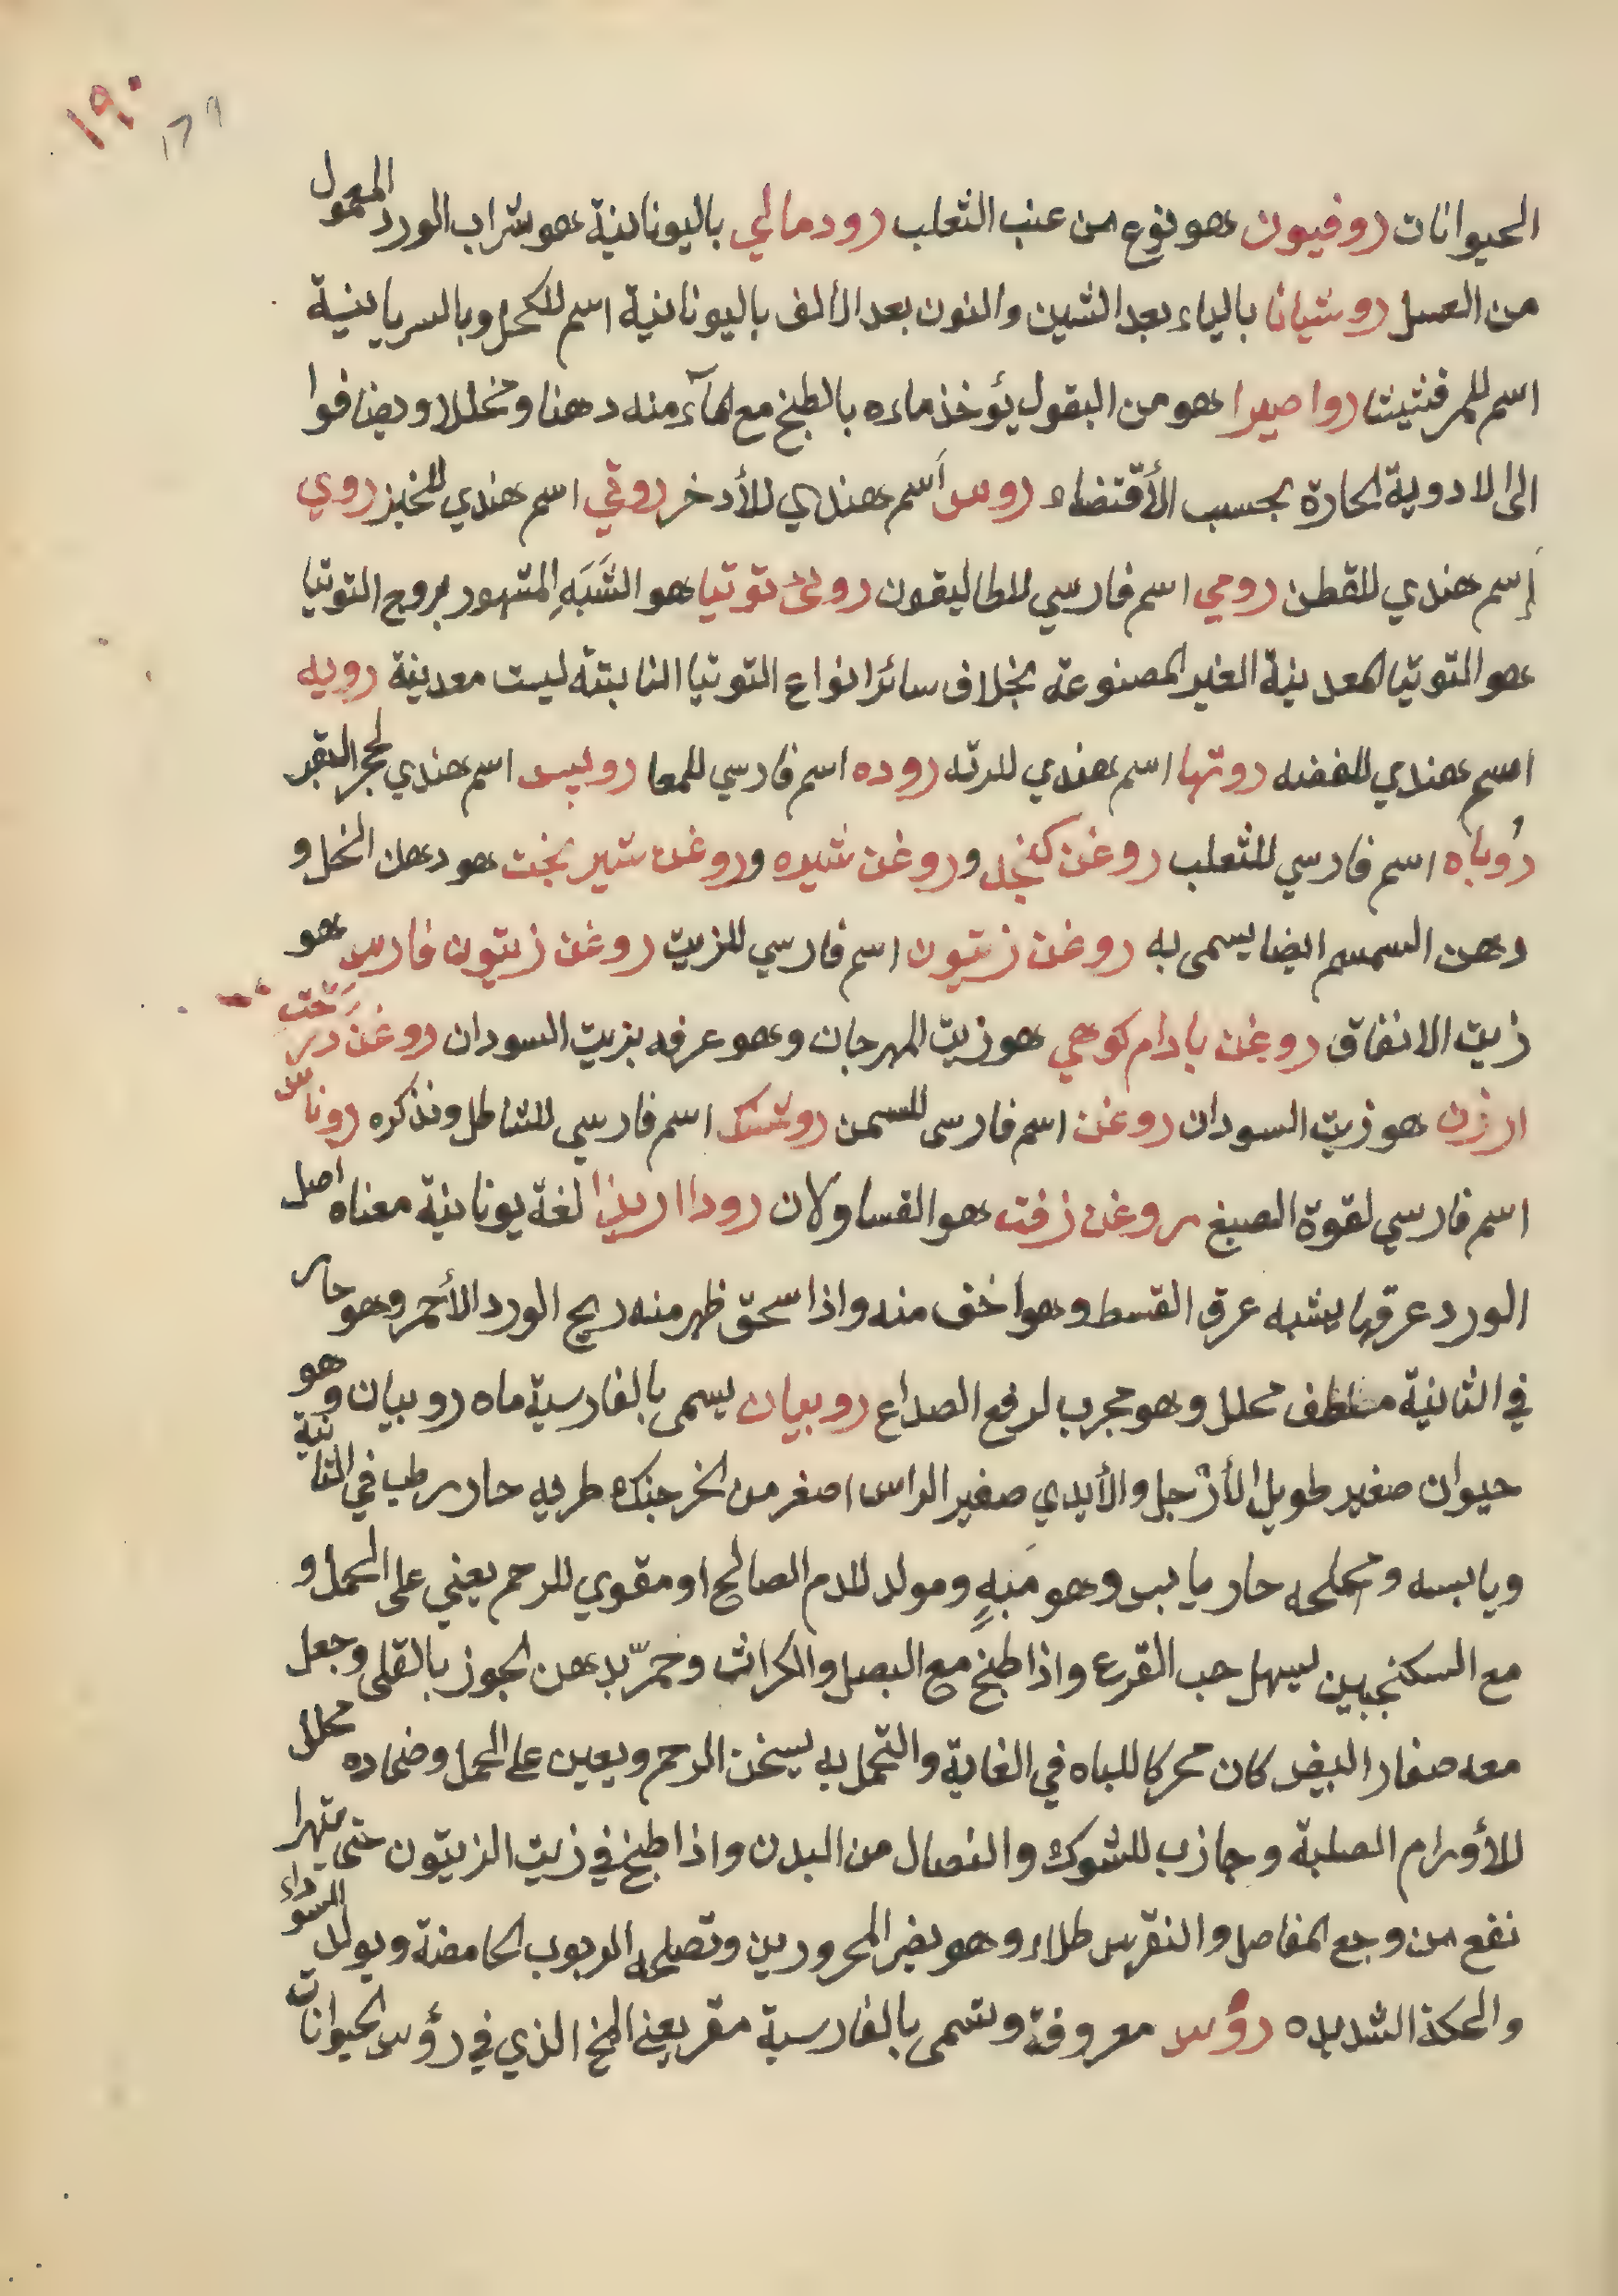 ١٩٠
١٧٩
الحيوانات روفيون هو نوع من عنب الثعلب رودمالي باليونانية هو شراب الورد المعمول
من العسل روشيانا بالياء بعد الشين والنون بعد الألف باليونانية اسم للكحل وبالسريانية
اسم للمرقشيثا رواصيرا هو من البقول يؤخذ ماءه بالطبخ مع لمآء منه دهنا ومخللا ويضافوا
الى الادوية الحارة بحسب الأقتضاء روس أسم هندي للأدخر روتي اسم هندي للخبز روي
إسم هندي للقطن رومي اسم فارسي للطاليقون روئ توتيا هو الشَبَهِ المشهور بروح التوتيا
هو التوتيا المعدنية الغير المصنوعة بخلاف سائر انواع التوتيا النابتته ليست معدنية روپه
اسم هندي للفضه روتها اسم هندي للرته روده اسم فارسي للمعا روپيس اسم هندي لحجر البقر
رُوباه اسم فارسي للثعلب روغن كنجد وروغن شيره وروغن شير بخت هو دهن الخل و
دهن السمسم ايضا يسمى به روغن زيتون اسم فارسي للزيت روغن زيتون فارس هو
زيت الانفاق روغن بادام كوهي هو زيت المهرجان وهو عرفه بزيت السودان روغن درَخت
ارزن هو زيت السودان روغن اسم فارسى للسمن روشنك اسم فارسي للشاطل ونذكره روناس
اسم فارسي لقوة الصبغ روغن زفت هو القساولان رودا اريذا لغة يونانية معناه اصل
الورد عرقها يشبه عرق القسط وهو اخف منه واذا سحق ظهر منه ريح الورد الأحمر وهو حار
في الثانية ملطف محلل وهو مجرب لرفع الصداع روبيان يسمى بالفارسية ماه روبيان وهو
حيوان صغير طويل الأرجل والأيدي صغير الراس اصغر من الخرجنك طريه حار رطب في الثانية
ويابسه ومملحه حار يابس وهو مَبهٍ ومولد للدم الصالح او مقوي للرحم يعني على الحمل و
مع السكنجبين ليسهل حب القرع واذا طبخ مع البصل والكراث وحمرّ بدهن الجوز بالقلى وجعل
معه صفار البيض كان محركا للباه في الغاية والتحمل به يسخن الرحم ويعين على الحمل وضماده محلل
للأورام الصلبة وجاذب للشوك والنصال من البدن واذا طبخ في زيت الزيتون حتى يتهرا
نفع من وجع المفاصل والنقرس طلاء وهو يضر المحرورين وتصلحه الربوب الحامضة ويولد السوداء
والحكة الشديده رؤس معروفة وتسمى بالفارسية مقر يعني المخ الذي في رؤس الحيوانات